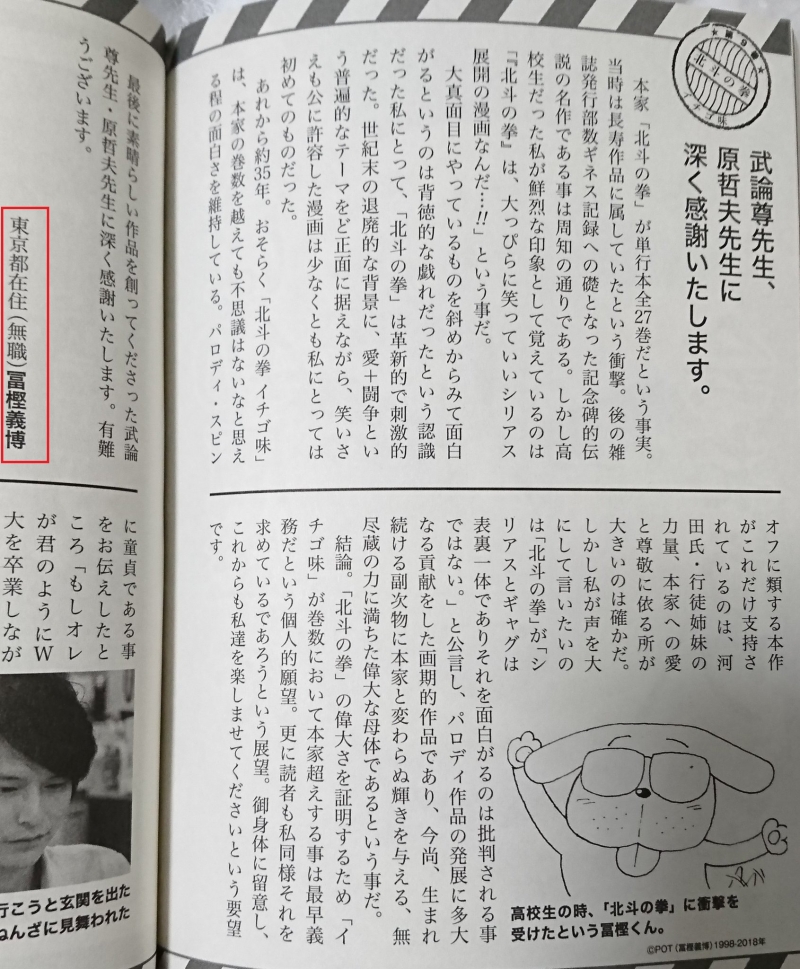 第9巻
北斗の拳
イチゴ味
武論尊先生、
原哲夫先生に
深く感謝いたします。
本家「北斗の拳」が単行本全27巻だという事実。
当時は長寿作品に属していたという衝撃。後の雑
誌発行部数ギネス記録への礎となった記念碑的伝
説の名作である事は周知の通りである。しかし高
校生だった私が鮮烈な印象として覚えているのは
『北斗の拳』は、大っぴらに笑っていいシリアス
展開の漫画なんだ…!!」という事だ。
大真面目にやっているものを斜めからみて面白
がるというのは背徳的な戯れだったという認識
だった私にとって、「北斗の拳」は革新的で刺激的
だった。世紀末の退廃的な背景に、愛+闘争とい
う普遍的なテーマをど正面に据えながら、笑いさ
えも公に許容した漫画は少なくとも私にとっては
初めてのものだった。
あれから約35年。おそらく「北斗の拳 イチゴ味」
は、本家の巻数を越えても不思議はないなと思え
る程の面白さを維持している。パロディ・スピン
オフに類する本作
がこれだけ支持さ
れているのは、河
田氏・行徒姉妹の
力量、本家への愛
と尊敬に依る所が
大きいのは確かだ。
しかし私が声を大
にして言いたいの
は「北斗の拳」が「シ
リアスとギャグは
表裏一体でありそれを面白がるのは批判される事
ではない。」と公言し、パロディ作品の発展に多大
なる貢献をした画期的作品であり、今尚、生まれ
続ける副次物に本家と変わらぬ輝きを与える、無
尽蔵の力に満ちた偉大な母体であるという事だ。
結論。「北斗の拳」の偉大さを証明するため「イ
チゴ味」が巻数において本家超えする事は最早義
務だという個人的願望。更に読者も私同様それを
求めているであろうという展望。御身体に留意し、
これからも私達を楽しませてくださいという要望
です。
高校生の時、「北斗の拳」に衝撃を
受けたという冨樫くん。
©POT(冨樫義博)1998-2018年
最後に素晴らしい作品を創ってくださった武論
尊先生・原哲夫先生に深く感謝いたします。有難
うございます。
東京都在住(無職)冨樫義博
に童貞である事
をお伝えしたと
ころ「もしオレ
が君のようにW
大を卒業しなが
行こうと玄関を出た
ねんざに見舞われた